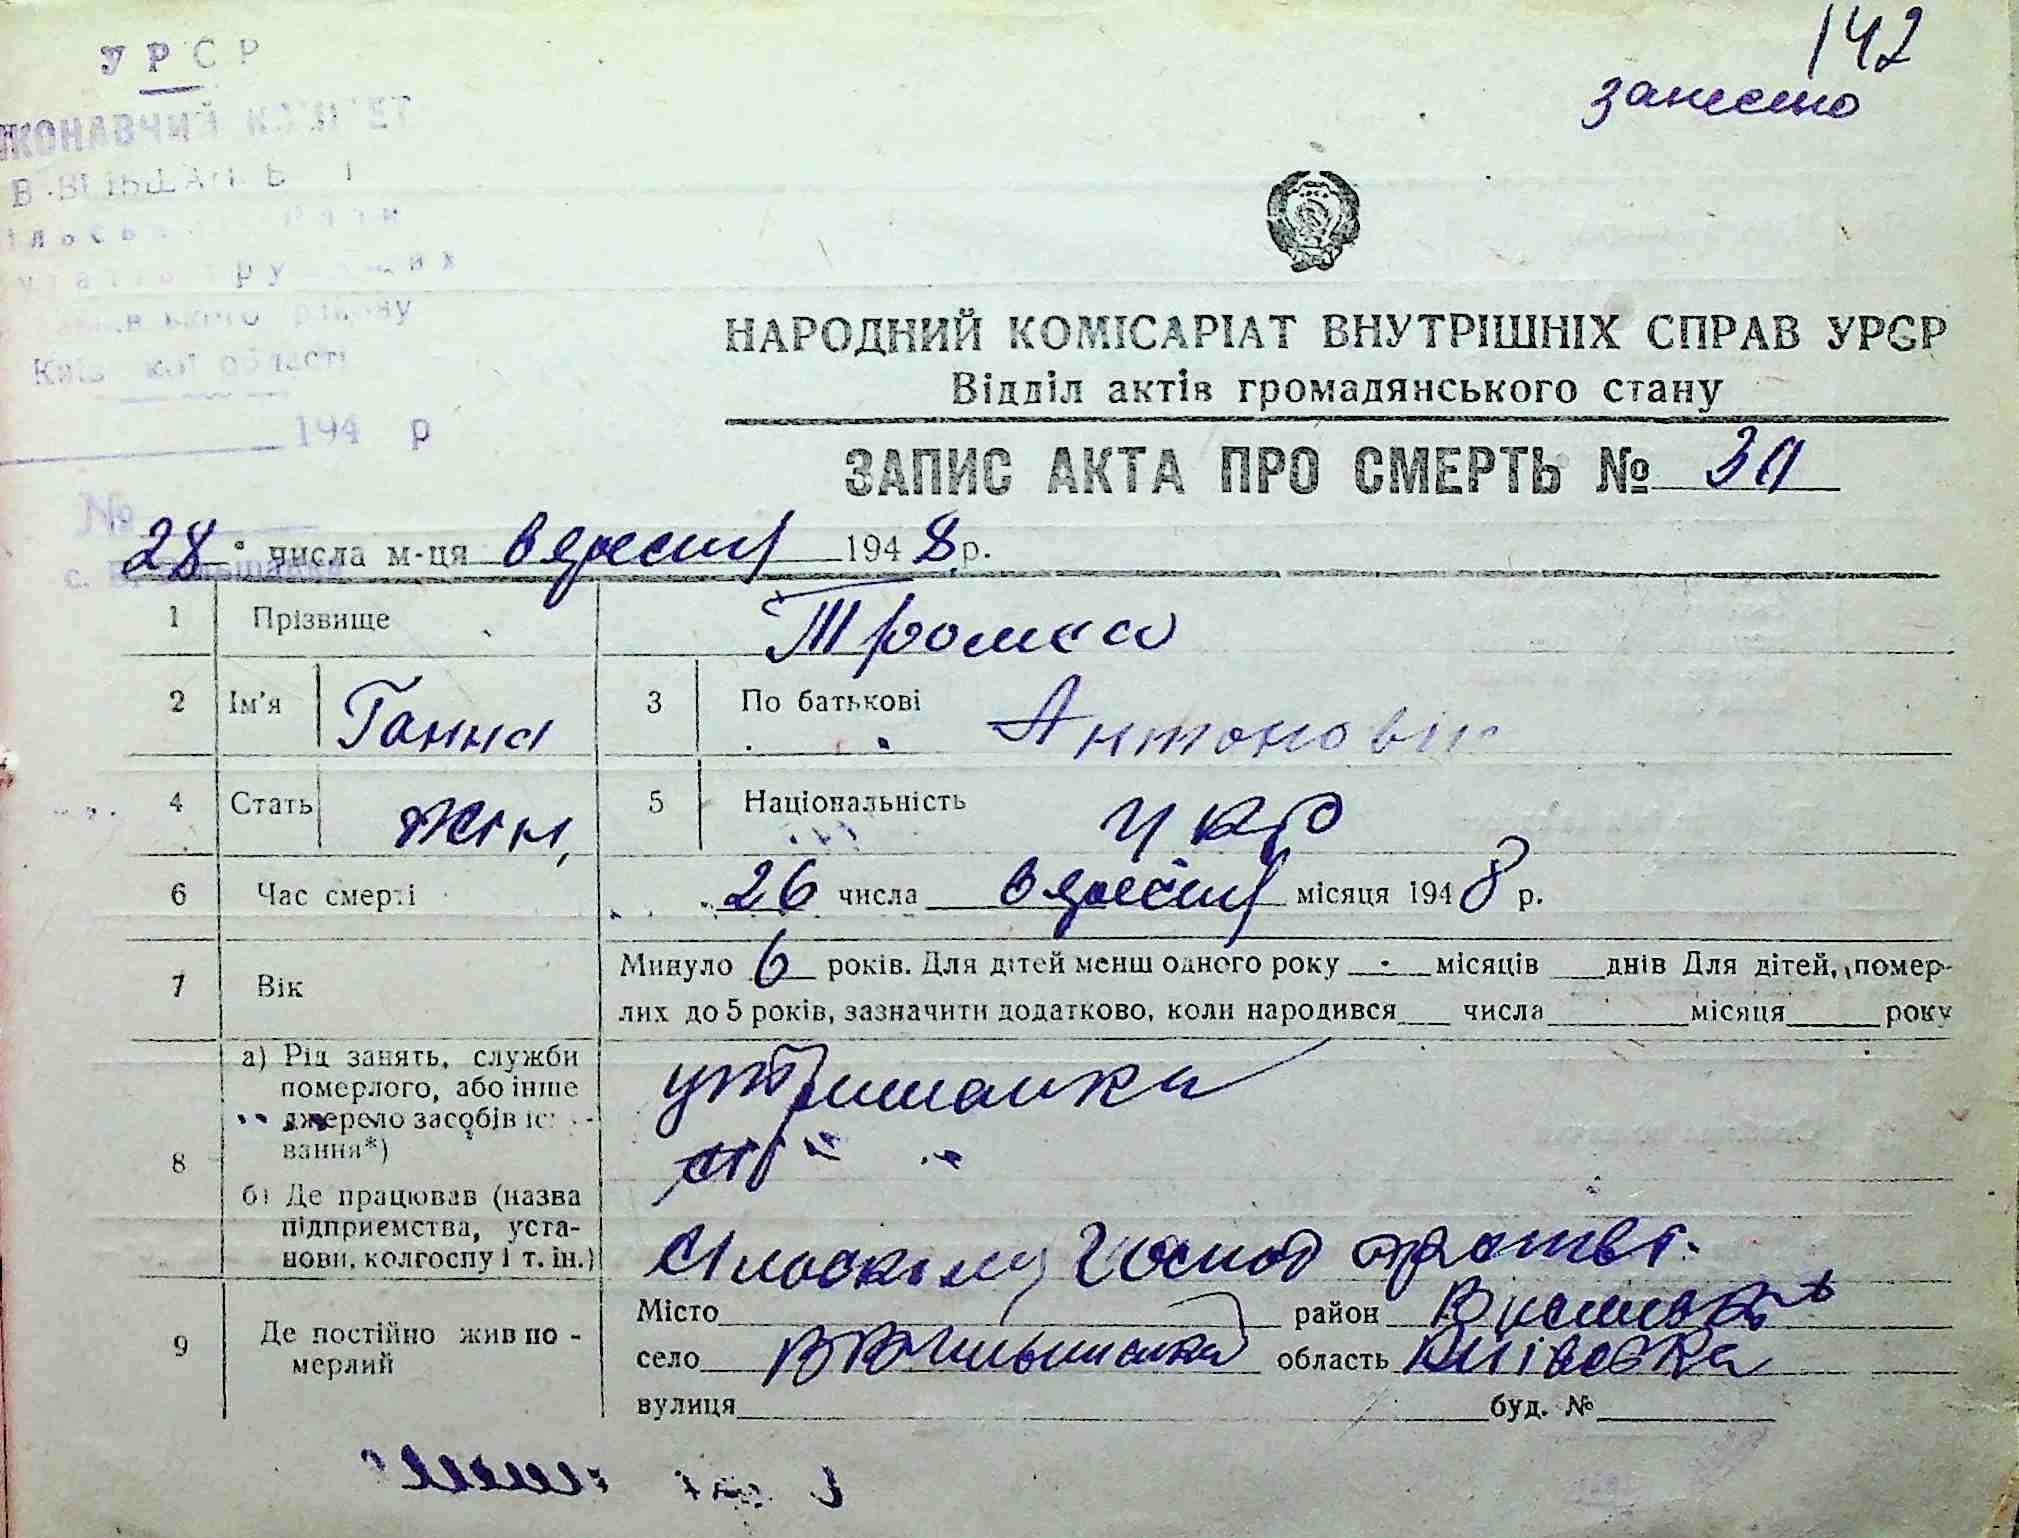 142
занесено
УРСР
ВИКОНАВЧИЙ КОМІТЕТ
Київської області
194 р
№
НАРОДНИЙ КОМІСАРІАТ ВНУТРІШНІХ СПРАВ УРСР
Відділ актів громадянського стану
ЗАПИС АКТА ПРО СМЕРТЬ №
28 числа м-ця вересня 1948 р.
1 Прізвище
2 Ім'я Ганна 3 По батькові Антоновн
4 Стать жін, 5 Національність укр
6 Час смерті 26 числа вересня місяця 1948 р.
7 Вік Минуло 6 років. Для дітей менш одного року - місяців днів Для дітей, помер-
лих до 5 років, зазначити додатково, коли народився числа місяця року
8 а) Рід занять, служби
померлого, або інше
джерело засобів існу-
вання*) утриманка
б) Де працював (назва
підприємства, уста-
нови, колгоспу і т. ін.)
9 Де постійно жив по-
мерлий
Місто район
село В Вільшанка область Київска
вулиця буд. №